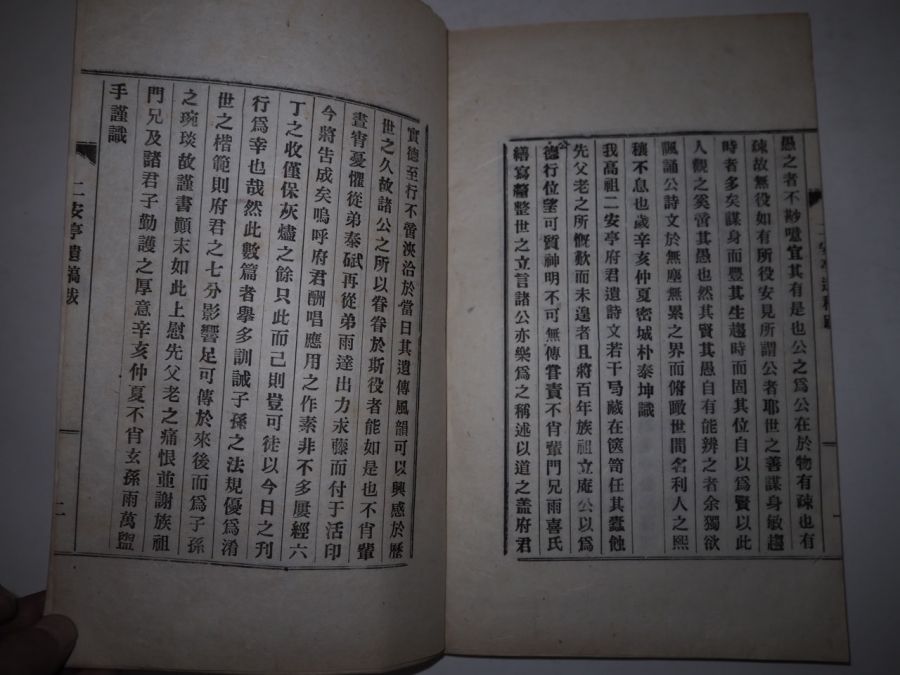 愚之者不尠噫宜其有是也公之爲公在於物有疎也有
疎故無役如有所役安見所謂公者耶世之善謀身敏趨
時者多矣謀身而豐其生趨時而固其位自以爲賢以此
人觀之奚啻其愚也然其賢其愚自有能辨之者余獨欲
諷誦公詩文於無塵無累之界而俯瞰世間名利人之熙
穰不息也歲辛亥仲夏密城朴泰坤識
我高祖二安亭府君遺詩文若干局藏在篋笥任其蠹蝕
先父老之所慨歎而未遑者且將百年族祖立庵公以爲
公德行位望可質神明不可無傳嘗責不肖輩門兄雨喜氏
繕寫釐整世之立言諸公亦樂爲之稱述以道之盖府君
實德至行不啻浹洽於當日其遺傳風韻可以興感於歷
世之久故諸公之所以眷眷於斯役者能如是也不肖輩
晝宵憂懼從弟泰碔再從弟雨達出力求藤而付于活印
今將告成矣嗚呼府君酬唱應用之作素非不多屢經六
丁之收僅保灰燼之餘只此而已則豈可徒以今日之刊
行爲幸也哉然此數篇者擧多訓誡子孫之法規優爲淆
世之楷範則府君之七分影響足可傳於來後而爲子孫
之琬琰故謹書顚末如此上慰先父老之痛恨並謝族祖
門兄及諸君子勤護之厚意辛亥仲夏不肖玄孫雨萬盥
手謹識
二安亭遺稿跋
二